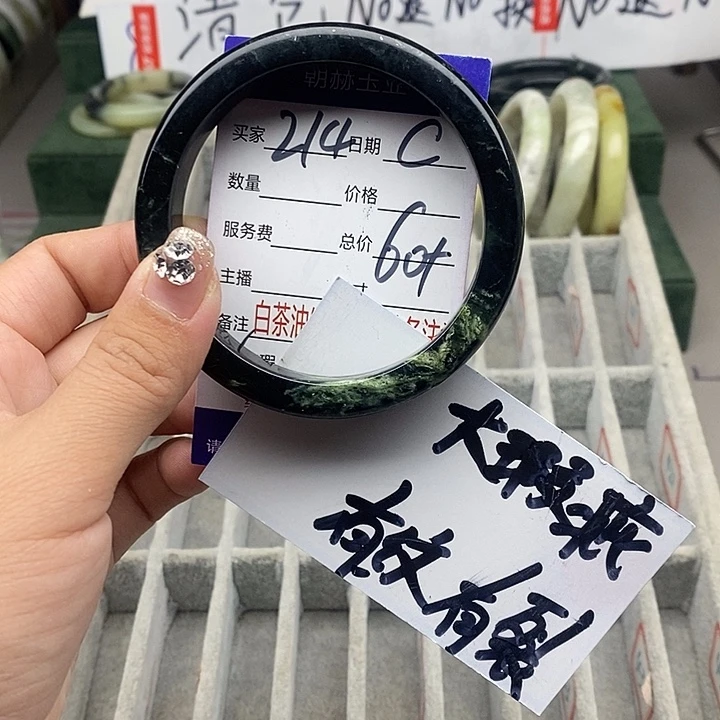 No退 No换 No退
朝赫玉业
买家 214 日期 C
数量 价格
服务费 总价 60t
主播
备注 白茶油
瑕
请
大瑕疵
有纹有裂